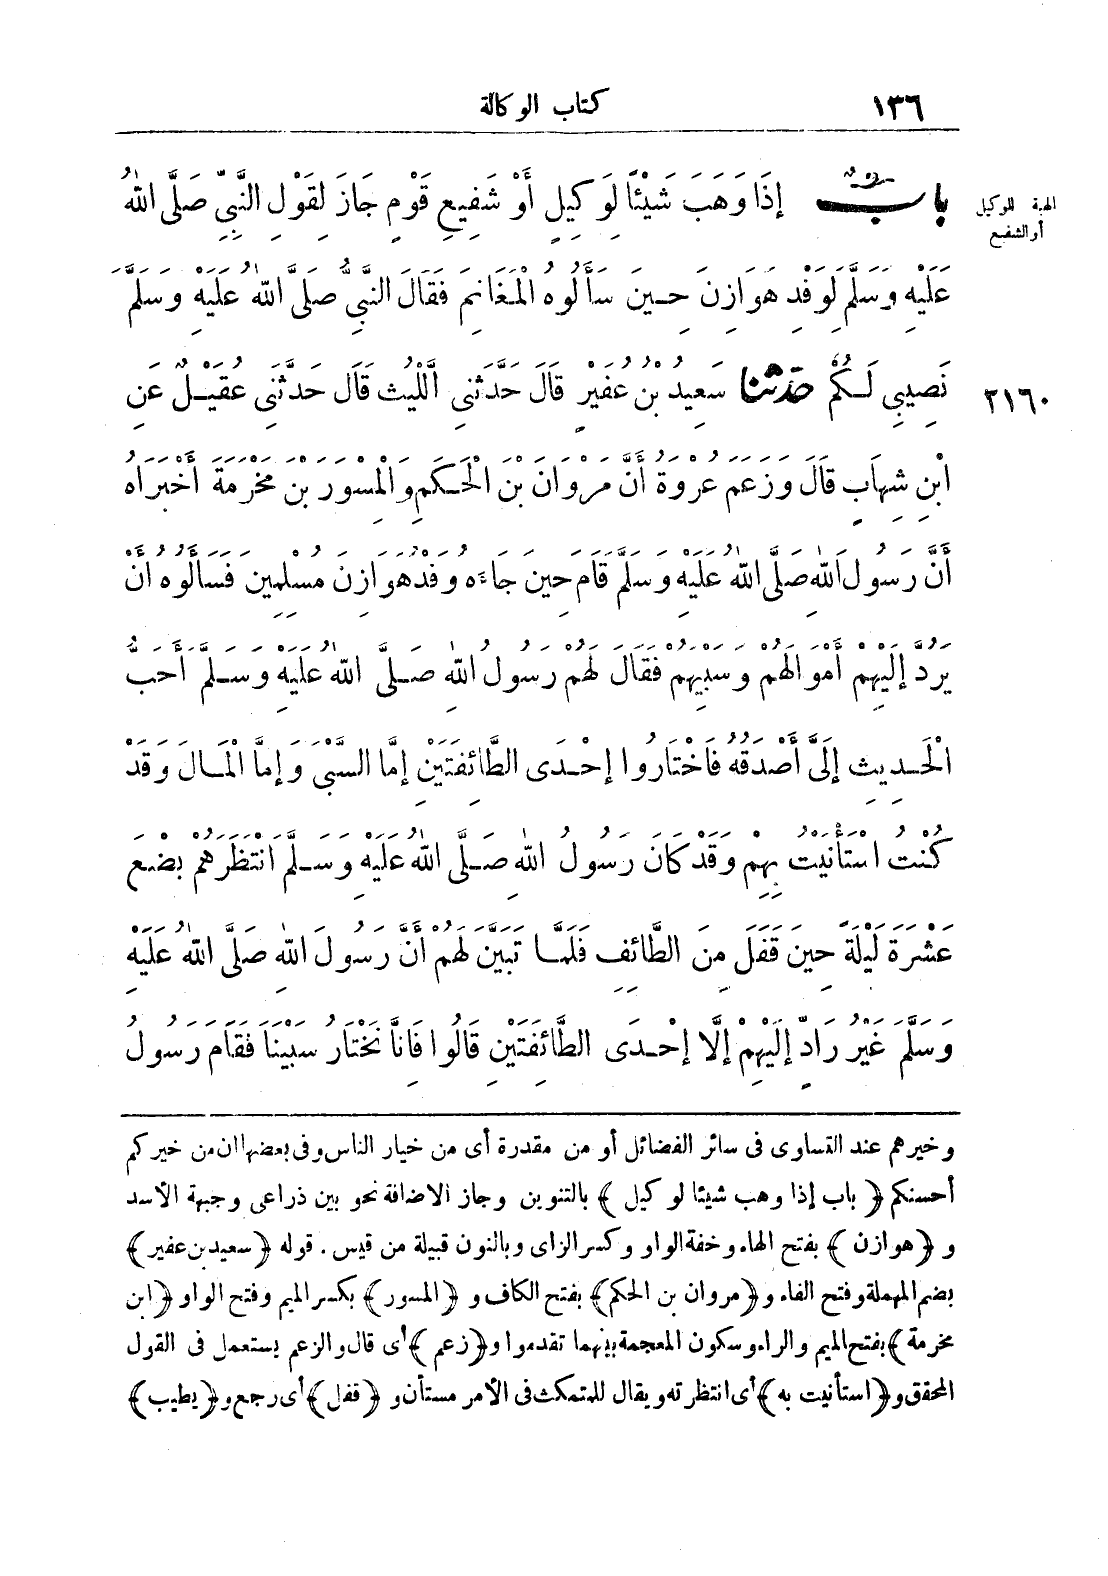 ١٣٦ كتاب الوكالة
بابٌ إِذَا وَهَبَ شَيْئًا لِوَكِيلٍ أَوْ شَفِيعِ قَوْمٍ جَازَ لِقَوْلِ النَّبِيِّ صَلَّى اللهُ
الهبة للوكيل
أو الشفيع
عَلَيْهِ وَسَلَّمَ لِوَفْدِ هَوَازِنَ حِينَ سَأَلُوهُ الْمَغَانِمَ فَقَالَ النَّبِيُّ صَلَّى اللهُ عَلَيْهِ وَسَلَّمَ
نَصِيبِي لَكُمْ حدثنا سَعِيدُ بْنُ عُفَيْرٍ قَالَ حَدَّثَنِي اللَّيْثُ قَالَ حَدَّثَنِي عُقَيْلٌ عَنِ
٢١٦٠
ابْنِ شِهَابٍ قَالَ وَزَعَمَ عُرْوَةُ أَنَّ مَرْوَانَ بْنَ الْحَكَمِ وَالْمِسْوَرَ بْنَ مَخْرَمَةَ أَخْبَرَاهُ
أَنَّ رَسُولَ اللهِ صَلَّى اللهُ عَلَيْهِ وَسَلَّمَ قَامَ حِينَ جَاءَهُ وَفْدُ هَوَازِنَ مُسْلِمِينَ فَسَأَلُوهُ أَنْ
يَرُدَّ إِلَيْهِمْ أَمْوَالَهُمْ وَسَبْيَهُمْ فَقَالَ لَهُمْ رَسُولُ اللهِ صَلَّى اللهُ عَلَيْهِ وَسَلَّمَ أَحَبُّ
الْحَدِيثِ إِلَيَّ أَصْدَقُهُ فَاخْتَارُوا إِحْدَى الطَّائِفَتَيْنِ إِمَّا السَّبْيَ وَإِمَّا الْمَالَ وَقَدْ
كُنْتُ اسْتَأْنَيْتُ بِهِمْ وَقَدْ كَانَ رَسُولُ اللهِ صَلَّى اللهُ عَلَيْهِ وَسَلَّمَ انْتَظَرَهُمْ بِضْعَ
عَشْرَةَ لَيْلَةً حِينَ قَفَلَ مِنَ الطَّائِفِ فَلَمَّا تَبَيَّنَ لَهُمْ أَنَّ رَسُولَ اللهِ صَلَّى اللهُ عَلَيْهِ
وَسَلَّمَ غَيْرُ رَادٍّ إِلَيْهِمْ إِلَّا إِحْدَى الطَّائِفَتَيْنِ قَالُوا فَإِنَّا نَخْتَارُ سَبْيَنَا فَقَامَ رَسُولُ
وخيرهم عند التساوى فى سائر الفضائل أو من مقدرة أى من خيار الناس وفى بعضها ان من خيركم
أحسنكم ﴿ باب إذا وهب شيئا لوكيل ﴾ بالتنوين وجاز الاضافة نحو بين ذراعى وجبهة الأسد
و ﴿هوازن﴾ بفتح الهاء وخفة الواو وكسر الزاى وبالنون قبيلة من قيس . قوله ﴿سعيد بن عفير﴾
بضم المهملة وفتح الفاء و﴿مروان بن الحكم﴾ بفتح الكاف و ﴿المسور﴾ بكسر الميم وفتح الواو ﴿ابن
مخرمة﴾ بفتح الميم والراء وسكون المعجمة بينهما تقدموا و﴿زعم﴾ أى قال والزعم يستعمل فى القول
المحقق و﴿استأنيت به﴾ أى انتظرته ويقال للمتمكث فى الأمر مستأن و ﴿قفل﴾ أى رجع و﴿يطيب﴾